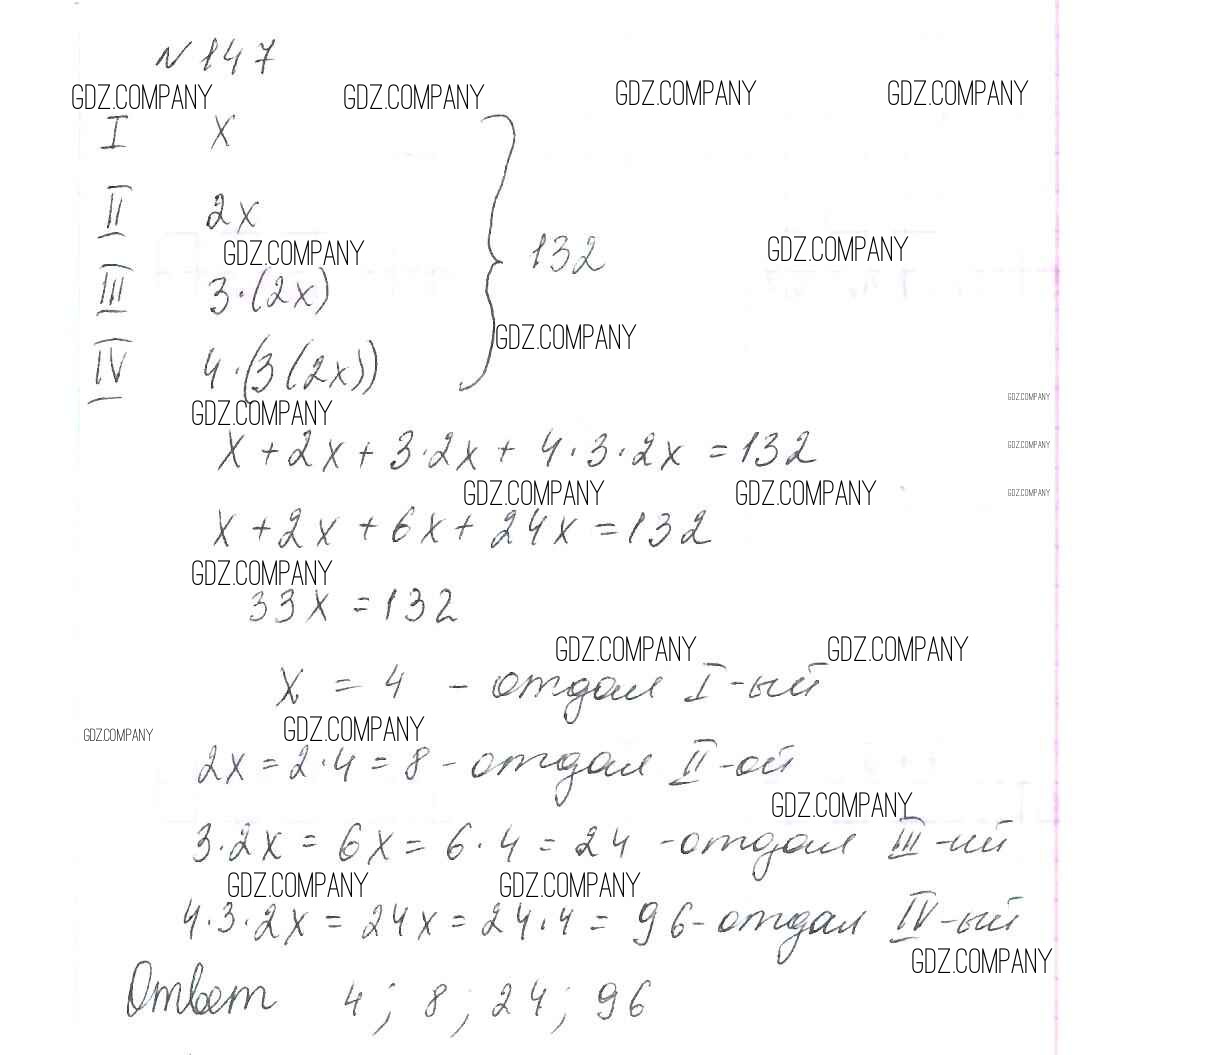 N 147
GDZ.COMPANY GDZ.COMPANY GDZ.COMPANY GDZ.COMPANY
I x
II 2x
132
GDZ.COMPANY GDZ.COMPANY
III 3·(2x)
GDZ.COMPANY
IV 4·(3(2x))
GDZ.COMPANY
GDZ.COMPANY
x+2x+3·2x+4·3·2x=132
GDZ.COMPANY
GDZ.COMPANY GDZ.COMPANY GDZ.COMPANY
x+2x+6x+24x=132
GDZ.COMPANY
33x=132
GDZ.COMPANY GDZ.COMPANY
x = 4 - отдал I-ый
GDZ.COMPANY GDZ.COMPANY
2x=2·4=8-отдал II-ой
GDZ.COMPANY
3·2x=6x=6·4=24-отдал III-ий
GDZ.COMPANY GDZ.COMPANY
4·3·2x=24x=24·4=96-отдал IV-ый
GDZ.COMPANY
Ответ 4; 8; 24; 96